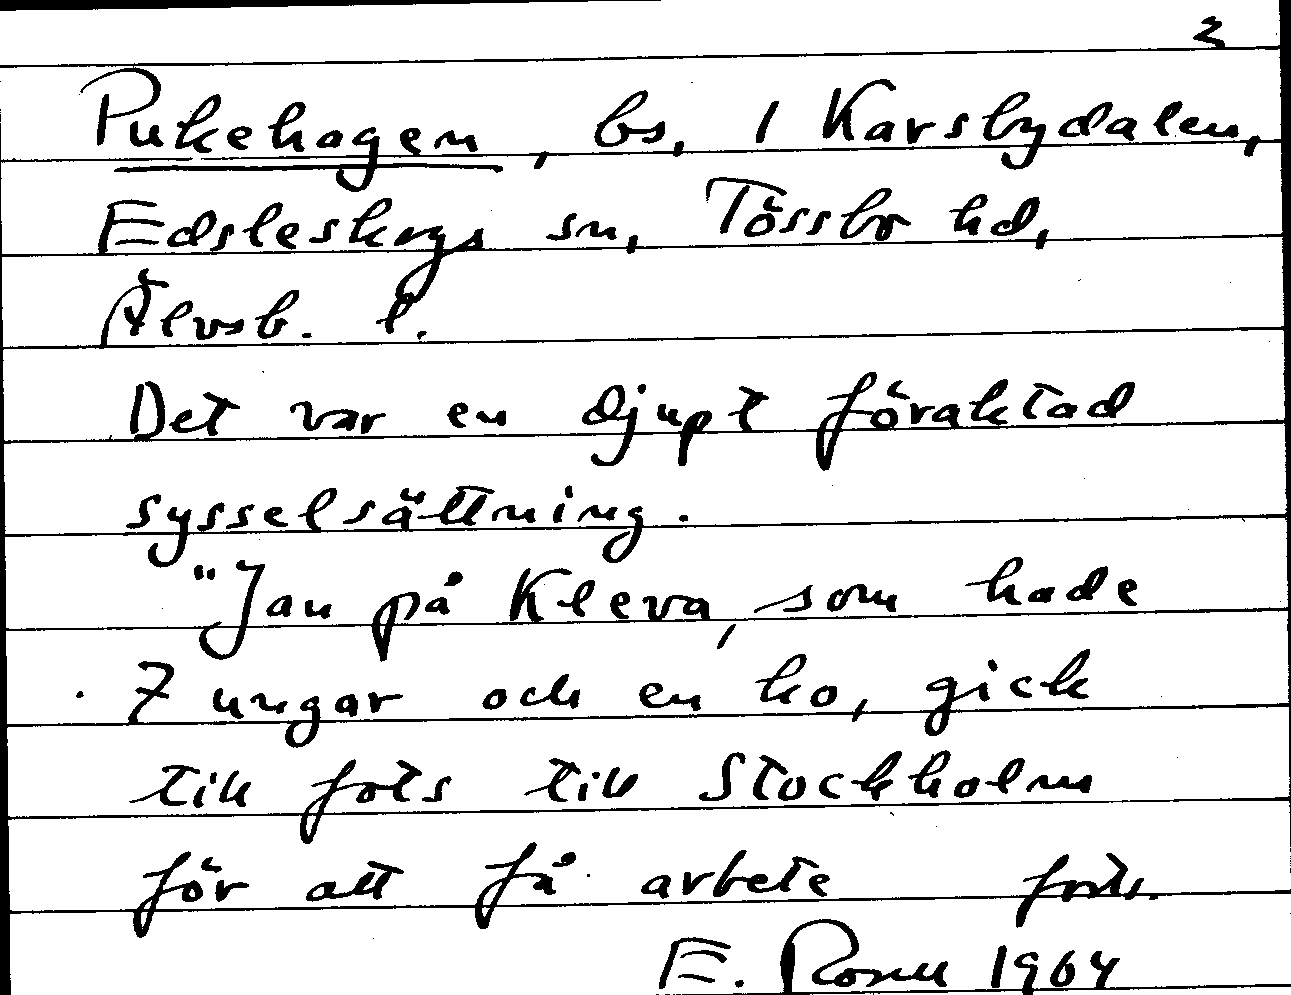 2
Pukehagen, bs, 1 Karsbydalen,
Edsleskogs sn, Tössbo hd,
Älvsb. l.
Det var en djupt föraktad
sysselsättning.
"Jan på Kleva, som hade
7 ungar och en ko, gick
till fots till Stockholm
för att få arbete forts.
E. 1964